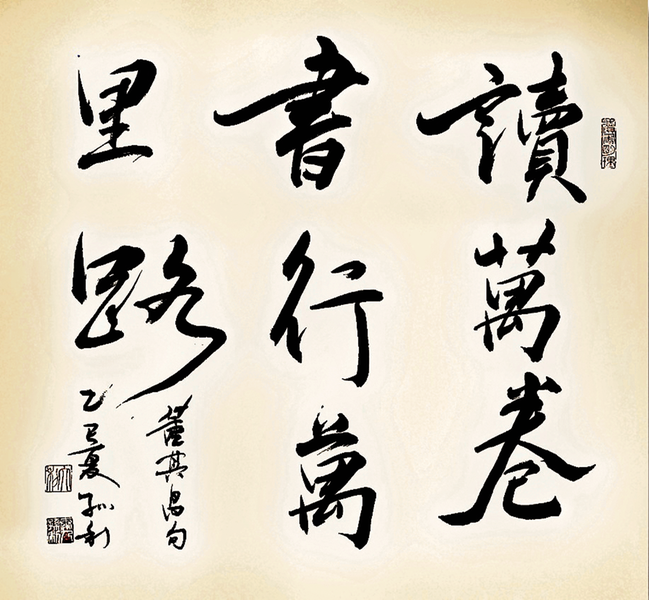 讀萬卷
書行萬
里路
董其昌句
乙巳夏
利